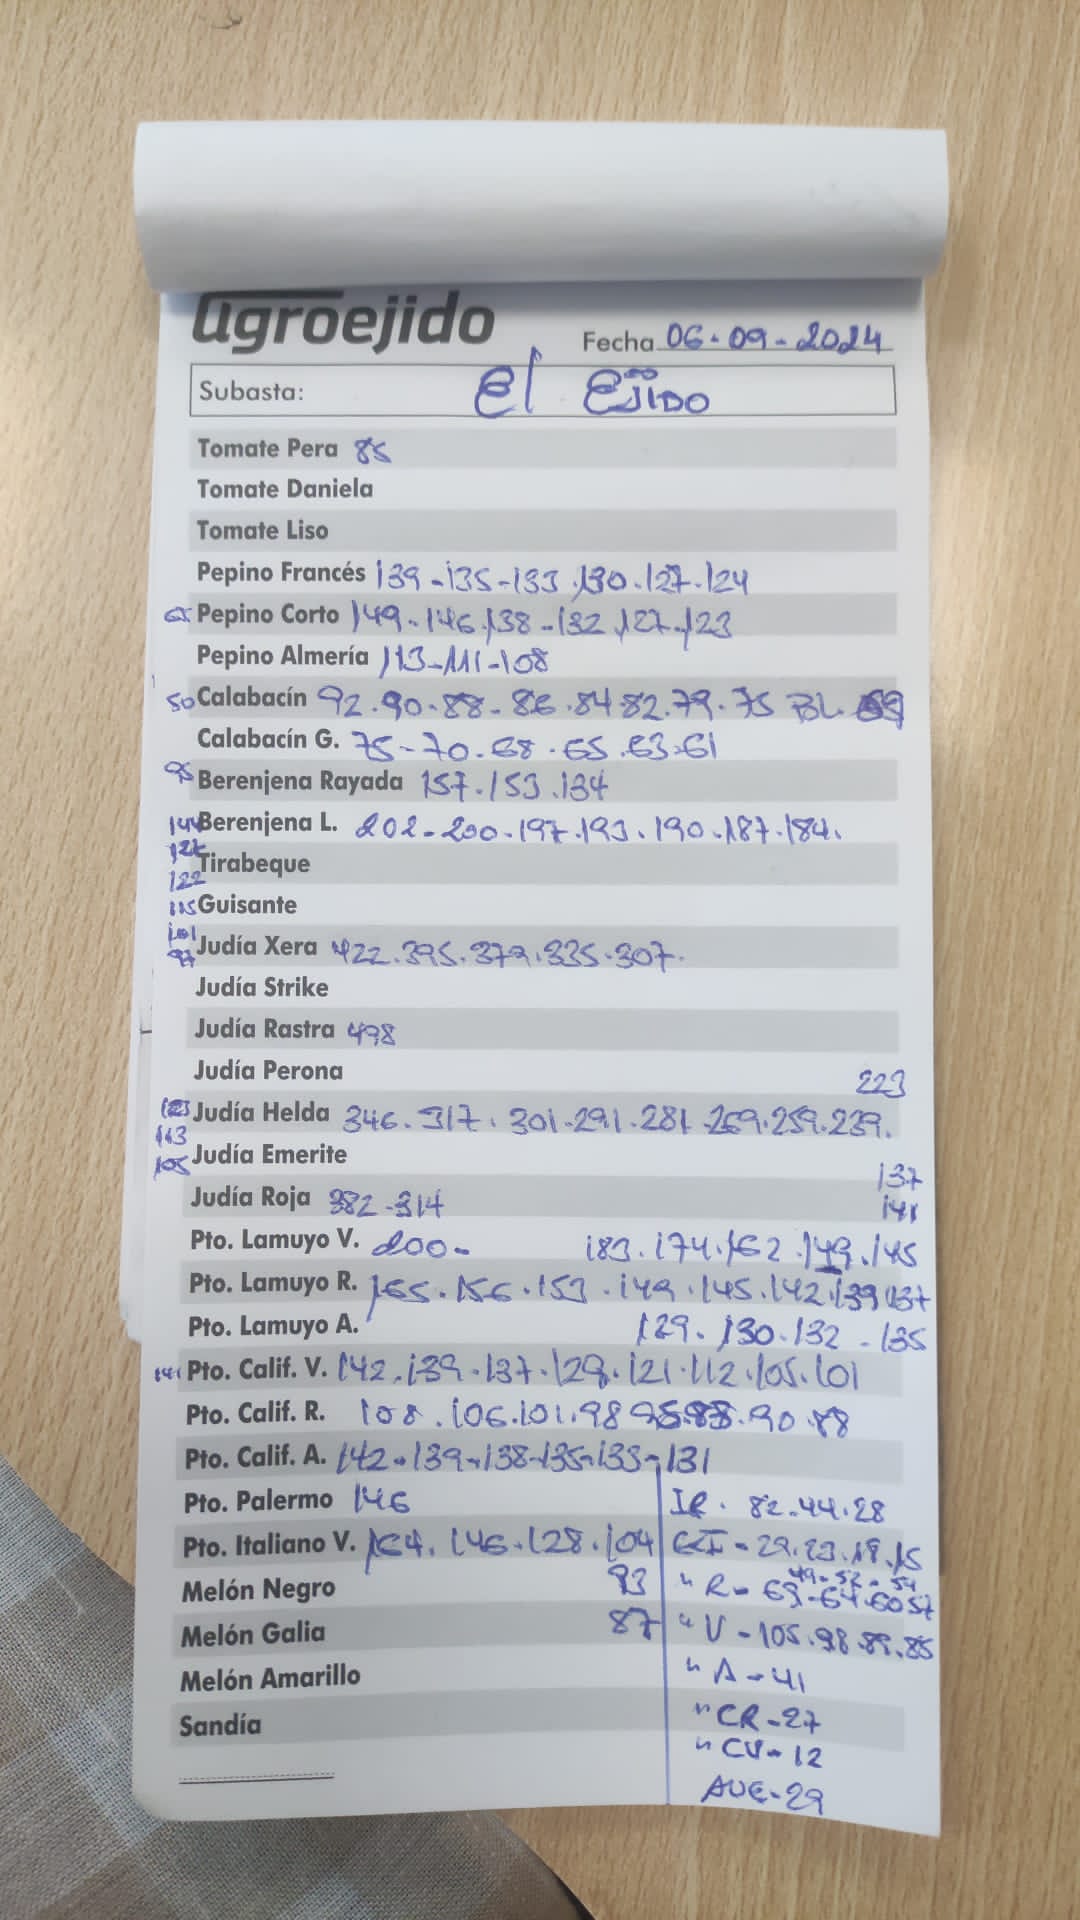 agroejido
Fecha 06-09-2024
Subasta: El EJIDO
Tomate Pera 85
Tomate Daniela
Tomate Liso
Pepino Francés 139-135-133.130.127.124
65 Pepino Corto 149.146.138-132.127.123
Pepino Almería 113-111-108
50 Calabacín 92.90.88-86.84.82.79.75 BL. 69
Calabacín G. 75-70.68.65.63-61
95 Berenjena Rayada 157.153.134
144 Berenjena L. 202-200.197.193.190.187.184.
Tirabeque
122
115 Guisante
101
97 Judía Xera 422.395.379.335.307.
Judía Strike
Judía Rastra 498
Judía Perona
223
Judía Helda 346.317.301.291.281.269.259.239.
113
105 Judía Emerite
137
Judía Roja 382-314
141
Pto. Lamuyo V. 200- 183.174.162.149.145
Pto. Lamuyo R. 165.156.153.149.145.142.139.137
Pto. Lamuyo A. 129.130.132-135
141 Pto. Calif. V. 142.139.137.129.121.112.105.101
Pto. Calif. R. 108.106.101.98 90.88
Pto. Calif. A. 142-139-138-135-133-131
Pto. Palermo 146
IR. 82.44.28
Pto. Italiano V. 164.146.128.104
93
87
CZI-29.23.19.15
49-52-54
" R-69-64.60 57
" V-105.98.89.85
" A-41
" CR-27
" CV-12
AUE-29
Melón Negro
Melón Galia
Melón Amarillo
Sandía